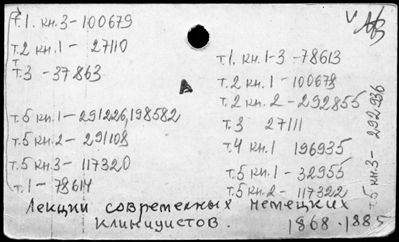 т.1. кн.3-100679
т.2 кн.1- 27110
т.3 -37863
т.5 кн.1-291226,198582
т.5 кн.2- 291108
т.5 кн.3- 117320
т.1- 78614
А
т.1. кн.1-3 -78613
т.2 кн.1 - 100678
т.2 кн.2 -292855
т.3 27111
т.4 кн.1 196935
т.5 кн.1-32955
т.5 кн.2- 117322
т.5 кн.3- 292936
Лекции современных немецких
клиницистов. 1868-1885